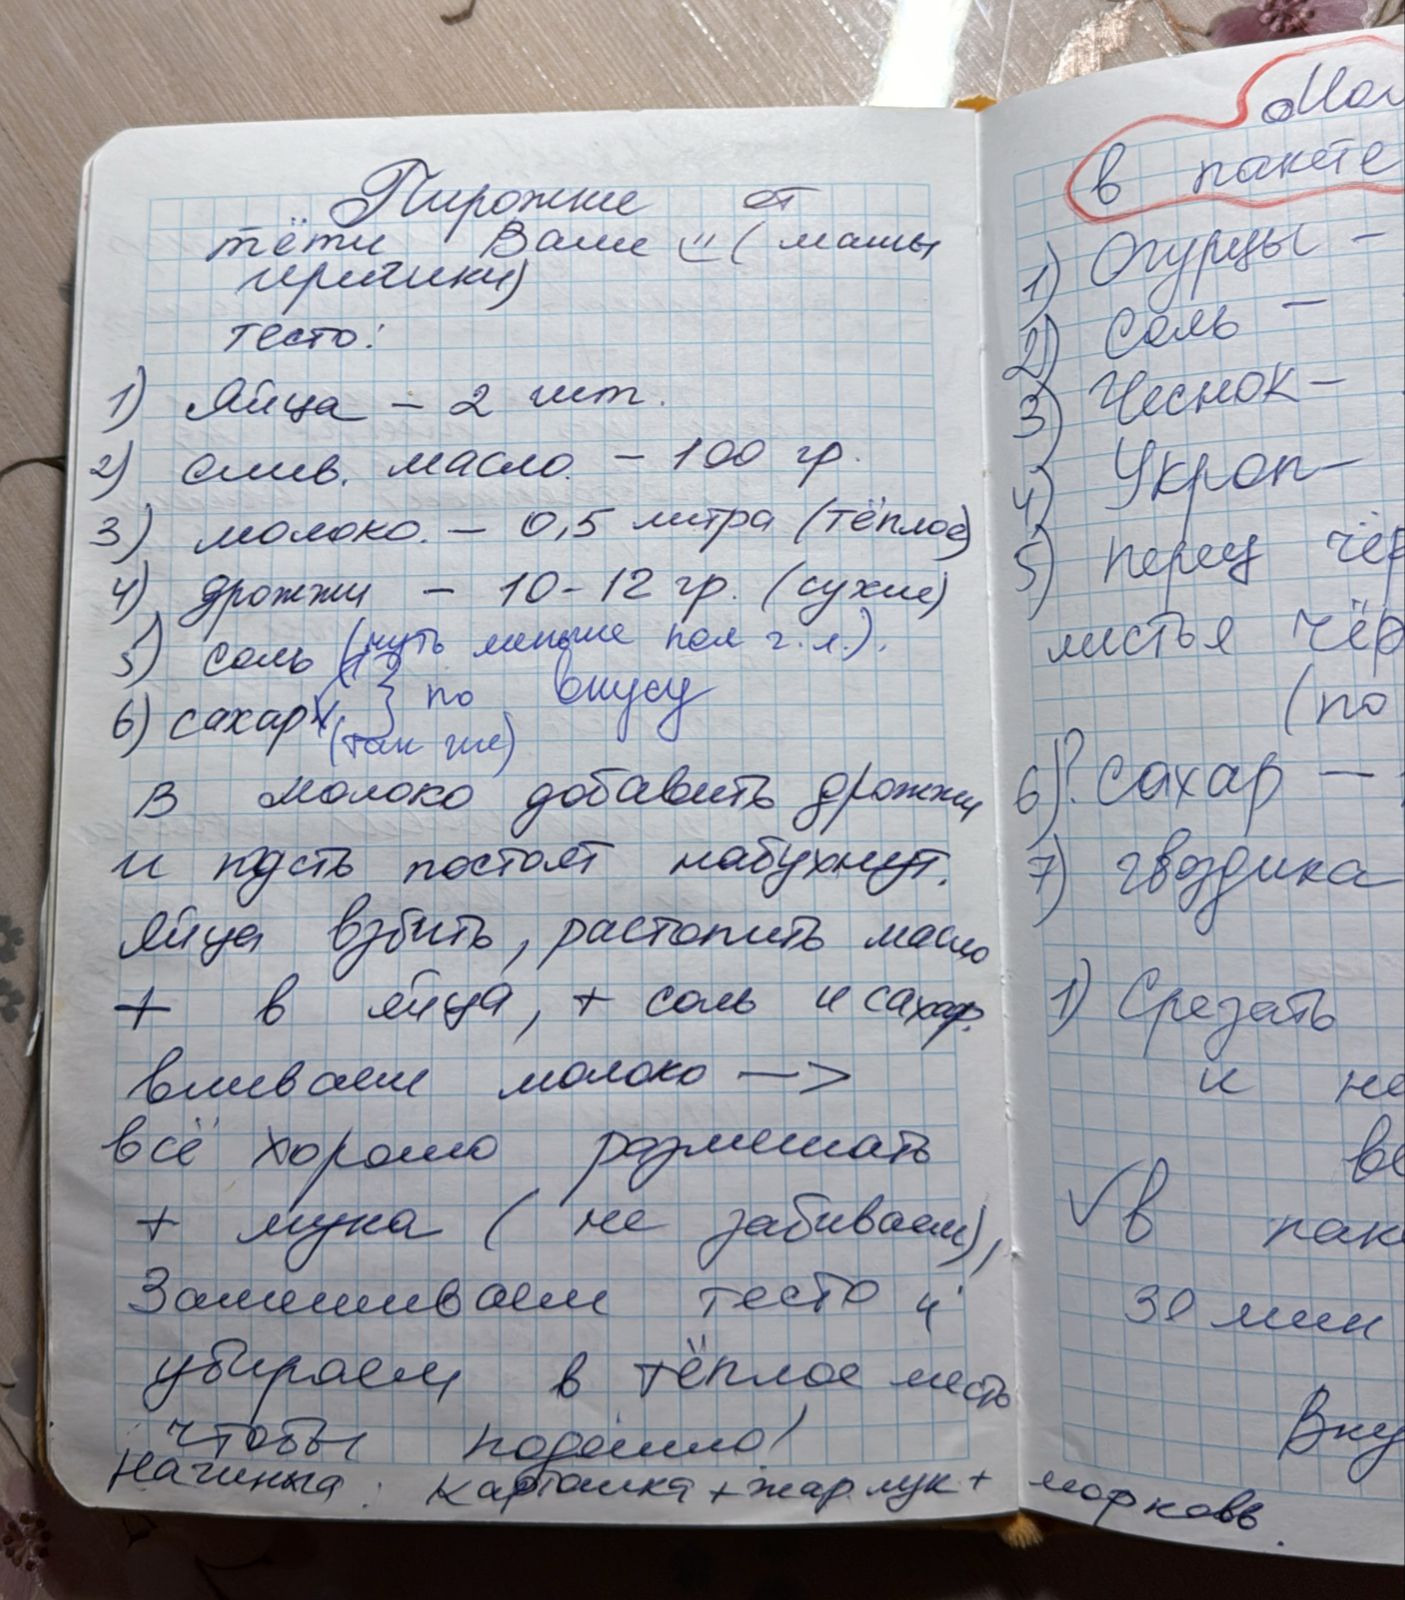 Пирожки от
тёти Вали (мамы
тесто:
1) Яйца – 2 шт.
2) слив. масло. – 100 гр.
3) молоко. – 0,5 литра (тёплое)
4) дрожжи – 10-12 гр. (сухие)
5) соль (чуть меньше пол ч.л.).
6) сахар } по вкусу
(так же)
В молоко добавить дрожжи
и пусть постоят набухнут.
Яйца взбить, растопить масло
+ в яйца, + соль и сахар.
вливаем молоко —>
всё хорошо размешать
+ мука (не забиваем),
Замешиваем тесто и
убираем в тёплое место
чтобы подошло!
Начинка: картошка + жар. лук + морковь.
в пакете
1) Огурцы –
2) Соль –
3) Чеснок –
4) Укроп –
5) перец чёр
листья чёр
(по
6)? сахар –
7) гвоздика
1) Срезать
и не
✓ в пак
30 мин
Вку